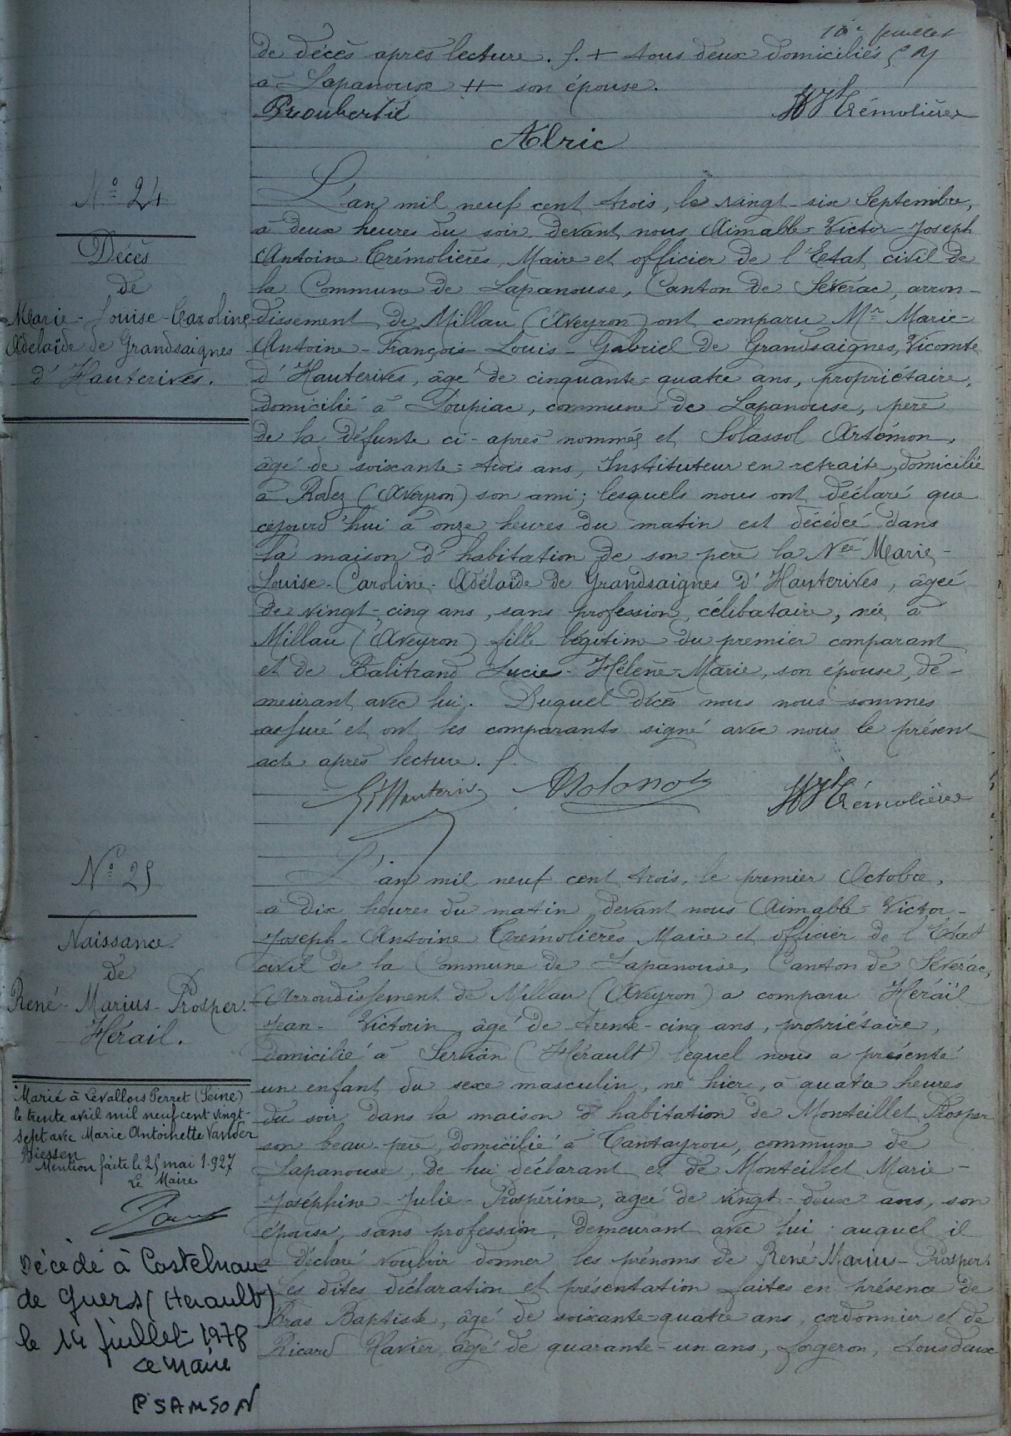 10e feuillet
de décès après lecture. f. + tous deux domiciliés
à Lapanouse ++ son épouse.
Proubertié
Trémolières
Alric
No 24
Décès
de
Marie-Louise-Caroline
Adélaïde de Grandsaignes
d'Hauterives.
L'an mil neuf cent trois, le vingt-six Septembre,
à deux heures du soir devant nous Aimable-Victor-Joseph
Antoine Trémolières, Maire et officier de l'Etat civil de
la Commune de Lapanouse, Canton de Sévérac, arron-
dissement de Millau (Aveyron) ont comparu Mr Marie-
Antoine-François-Louis-Gabriel de Grandsaignes, Vicomte
d'Hauterives, âgé de cinquante-quatre ans, propriétaire,
domicilié à Loupiac, commune de Lapanouse, père
de la défunte ci-après nommée et Solassol Artémon,
âgé de soixante-trois ans, Instituteur en retraite, domicilié
à Rodez (Aveyron) son ami; lesquels nous ont déclaré que
cejourd'hui à onze heures du matin est décédée dans
la maison d'habitation de son père la Née Marie-
Louise-Caroline-Adélaïde de Grandsaignes d'Hauterives, âgée
de vingt-cinq ans, sans profession, célibataire, née à
Millau (Aveyron) fille légitime du premier comparant
et de Balitrand Lucie-Hélène-Marie, son épouse, de-
meurant avec lui. Duquel décès nous nous sommes
assuré et ont les comparants signé avec nous le présent
acte après lecture. f.
Trémolières
No 25
Naissance
de
René-Marius-Prosper
Hérail.
L'an mil neuf cent trois, le premier Octobre,
à dix heures du matin devant nous Aimable-Victor-
Joseph-Antoine Trémolières Maire et officier de l'Etat
civil de la Commune de Lapanouse, Canton de Sévérac,
Arrondissement de Millau (Aveyron) a comparu Hérail
Jean-Victorin âgé de trente-cinq ans, propriétaire,
domicilié à Servian (Hérault) lequel nous a présenté
un enfant du sexe masculin, né hier, à quatre heures
du soir dans la maison d'habitation de Monteillet Prosper
son beau-père, domicilié à Cantayrou, commune de
Lapanouse, de lui déclarant et de Monteillet Marie-
Joséphine-Julie-Prospérine, âgée de vingt-deux ans, son
épouse, sans profession, demeurant avec lui auquel il
a déclaré vouloir donner les prénoms de René Marius-Prosper.
Les dites déclaration et présentation faites en présence de
Bras Baptiste, âgé de soixante-quatre ans, cordonnier et de
Ricard Xavier âgé de quarante-un ans, forgeron, tous deux
Marié à Levallois Perret (Seine)
le trente avril mil neuf cent vingt-
sept avec Marie Antoinette Vander
Mention faite le 25 mai 1927
Le Maire
Décédé à Castelnau
de Guers (Herault)
le 14 juillet 1978
Le Maire
P SAMSON